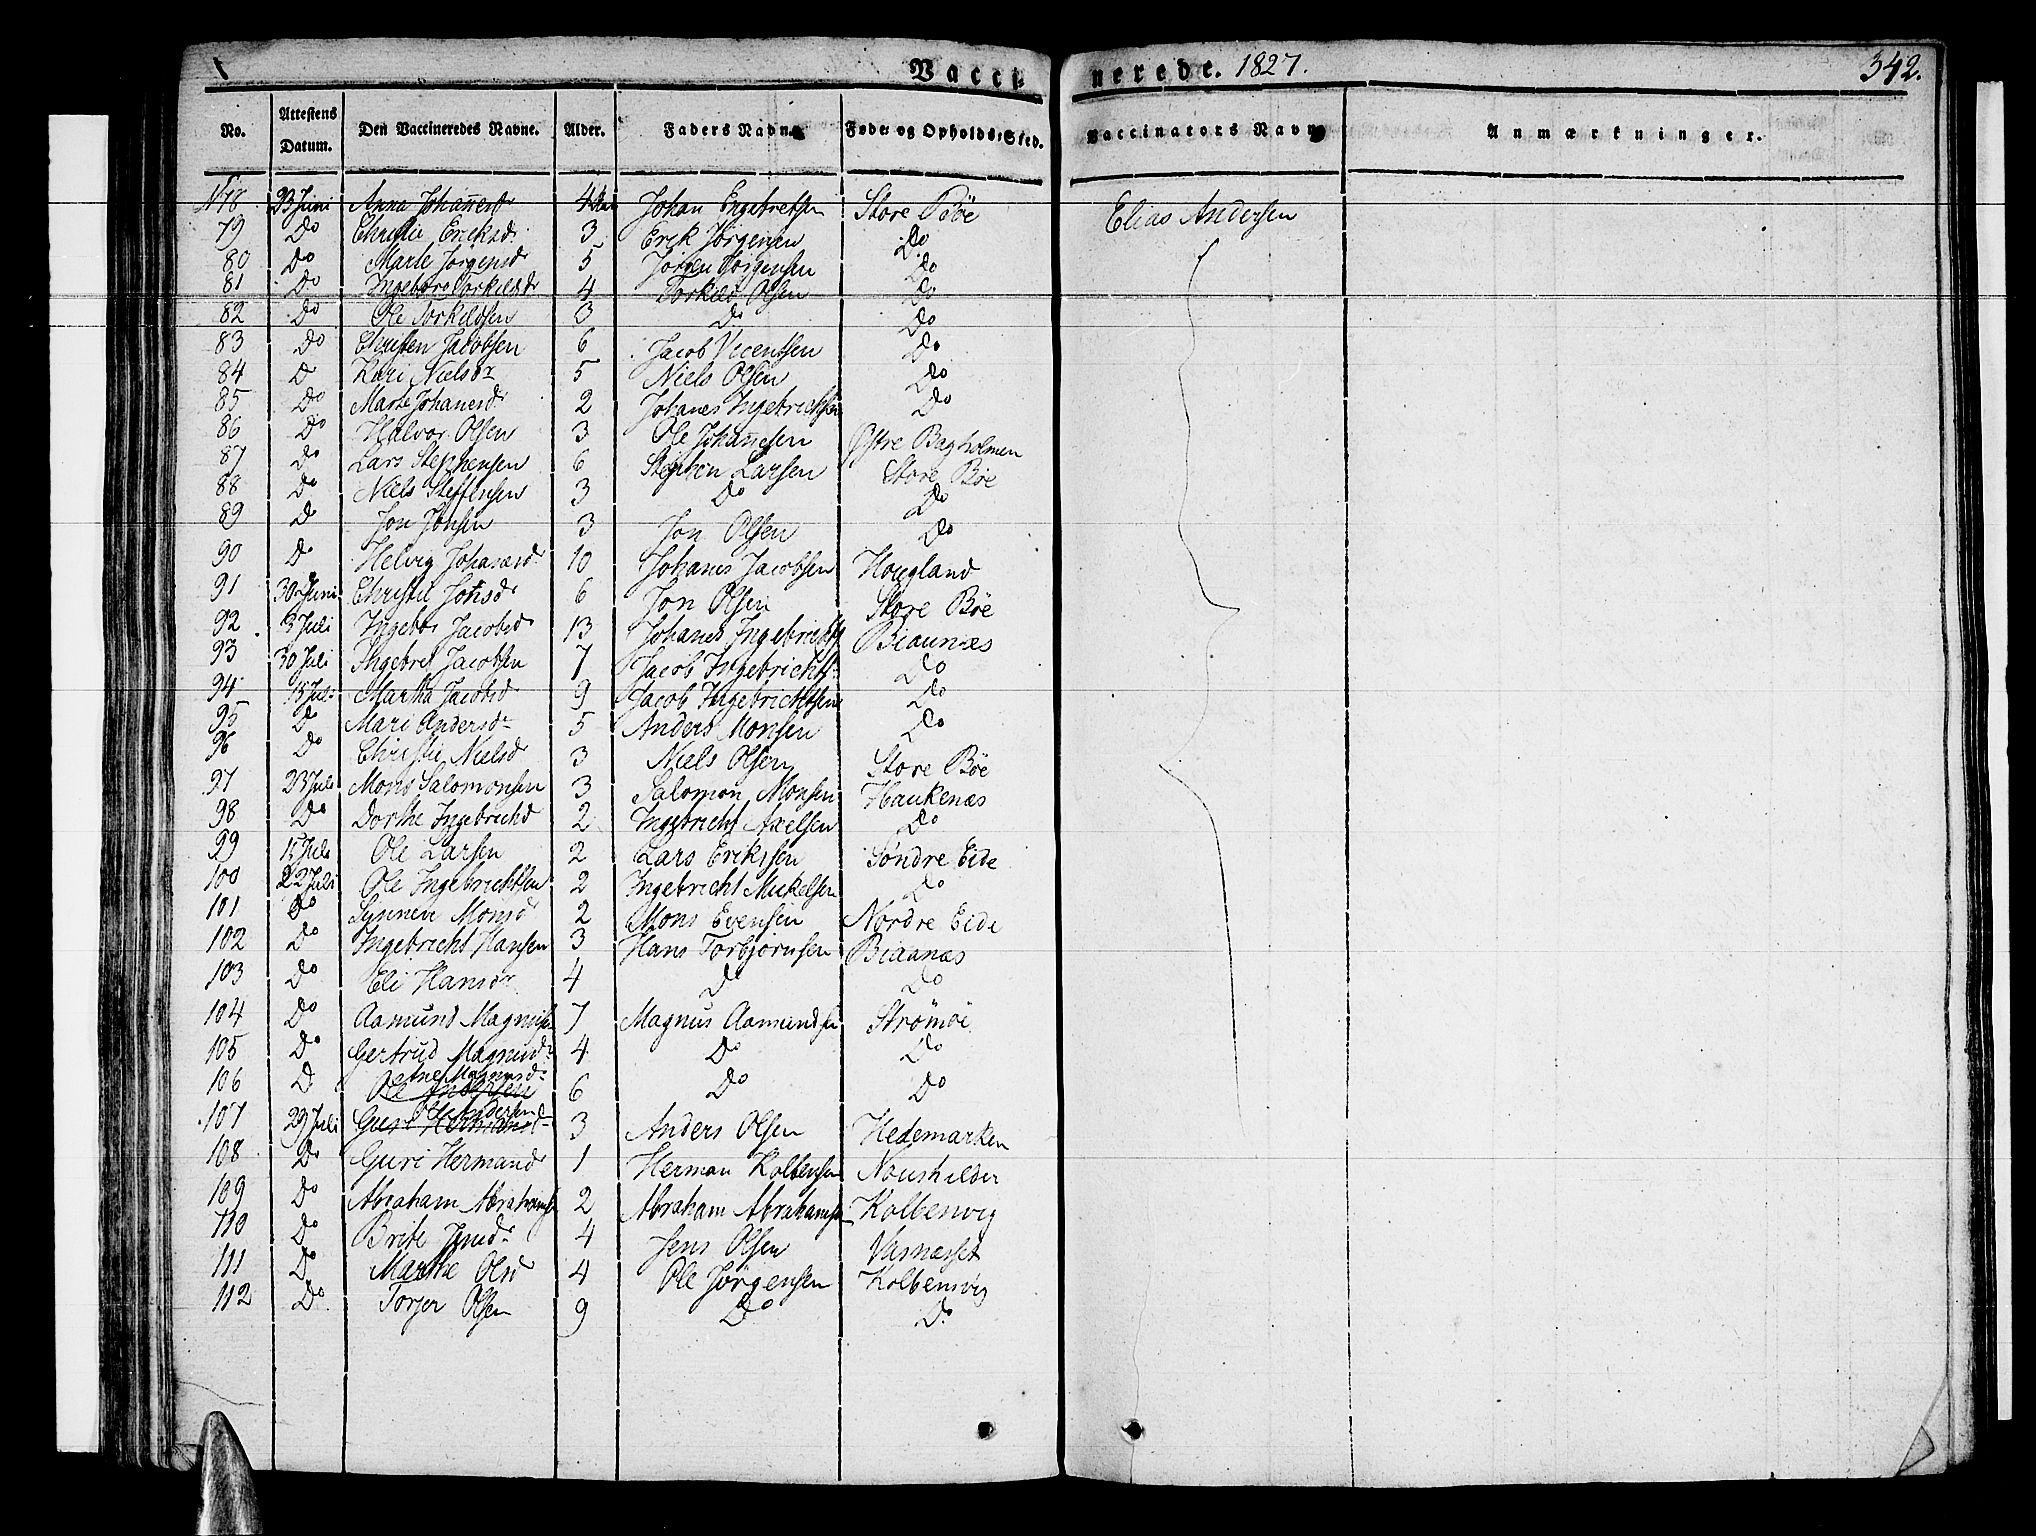 Vaccinerede. 1827. 342.
No. Attestens Datum. Den Vaccineredes Navne. Alder. Faders Navn Føde- og Opholds-Sted. Vaccinators Navn Anmærkninger.
N 78 23 Juni Anna Johañesdr 4 Johan Engebretsen Store Böe Elias Andersen
79 Do Christie Eriksdr 3 Erik Jörgensen Do
80 Do Marte Jörgensdr 5 Jörgen Jörgensen Do
81 Do Ingeborg Torkildsdr 4 Torkild Olsen Do
82 Do Ole Torkildsen 3 Do Do
83 Do Christen Jacobsen 6 Jacob Vicentsen Do
84 D Kari Nielsdr 5 Niels Olsen Do
85 Do Marte Johanesdr 2 Johanes Ingebrichtsen Do
86 Do Halvor Olsen 3 Ole Johañesen Østre Bagholmen
87 Do Lars Stephensen 6 Stephen Larsen Store Böe
88 Do Niels Steffensen 3 Do Do
89 D Jon Jonsen 3 Jon Olsen Do
90 Do Helvig Johanesdr 10 Johanes Jacobsen Hougland
91 30 Juni Christie Jonsdr 6 Jon Olsen Store Böe
92 3 Juli Ingebr Jacobsdr 13 Johanes Ingebrichts Biaanæs
93 30 Juli Ingebret Jacobsen 7 Jacob Ingebrichts Do
94 15 Juli Martha Jacobsd 9 Jacob Ingebrichtsen Do
95 D Mari Andersdr 5 Anders Monsen Do
96 Do Christie Nielsd 3 Niels Olsen Store Böe
97 23 Juli Mons Salomonsen 3 Salomon Monsen Haukenæs
98 Do Dorthe Ingebrichtsd 2 Ingebricht Axelsen Do
99 15 Juli Ole Larsen 2 Lars Eriksen Söndre Eide
100 22 Juli Ole Ingebrichtsen 2 Ingebricht Mikelsen Do
101 Do Synneve Monsdr 2 Mons Evensen Nordre Eide
102 Do Ingebricht Hansen 3 Hans Torbjörnsen Biaanæs
103 Do Eli Hansdr 4 Do Do
104 Do Aamund Magnusen 7 Magnus Aamundsen Strömöe
105 Do Gertrud Magnusdr 4 Do Do
106 D Ane Magnusdr 6 Do Do
107 29 Juli Ole Andersen 3 Anders Olsen Hedemarken
108 Do Guri Hermansdr 1 Herman Kolbensen Noushilder
109 Do Abraham Abrahams 2 Abraham Abrahamsen Kolbenvig
110 Do Brite Jensdr 4 Jens Olsen Vasnæsset
111 Do Marthe Olsd 4 Ole Jörgensen Kolbensvig
112 Do Torjer Olsen 9 Do Do